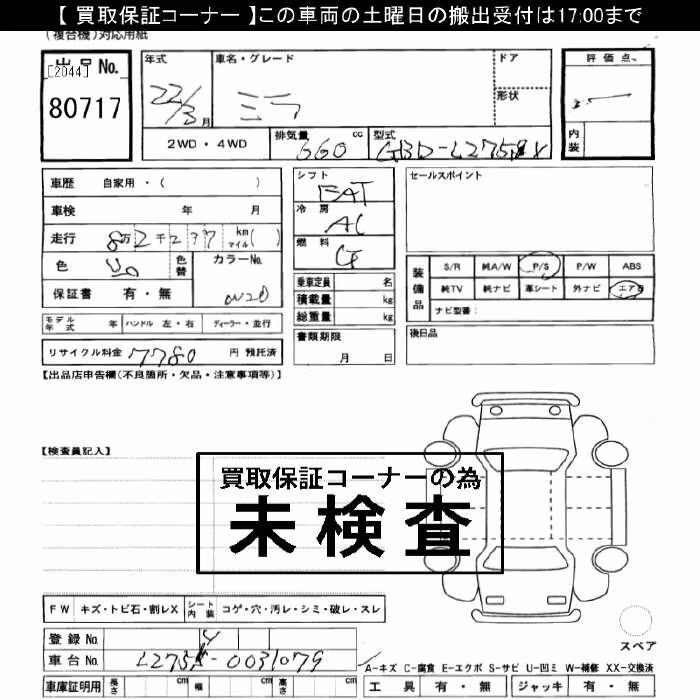 【 買取保証コーナー 】この車両の土曜日の搬出受付は17:00まで
(複合機)対応用紙
出品 No.
[2044]
80717
年式 車名・グレード ドア 評価点
22/3月 ミラ 形状
2WD・4WD 排気量 cc 660 型式
内装
車歴 自家用・( )
車検 年 月
走行 8万2千277 km マイル( )
色 色替 カラーNo.
保証書 有・無 W20
モデル年式 年 ハンドル 左・右 ディーラー・並行
リサイクル料金 7780 円 預託済
シフト FAT
冷房 AC
燃料 G
乗車定員 名
積載量 kg
総重量 kg
書類期限
月 日
セールスポイント
装備品
S/R 純A/W P/S P/W ABS
純TV 純ナビ 革シート 外ナビ エアB
ナビ型番:
後日品
【出品店申告欄(不良箇所・欠品・注意事項等)】
【検査員記入】
買取保証コーナーの為
未検査
FW キズ・トビ石・割レX シート内装 コゲ・穴・汚レ・シミ・破レ・スレ
スペア
登録 No.
車台 No. -0031079
A-キズ C-腐食 E-エクボ S-サビ U-凹ミ W-補修 XX-交換済
車庫証明用 長さ cm 幅 cm 高さ cm
工具 有・無 ジャッキ 有・無